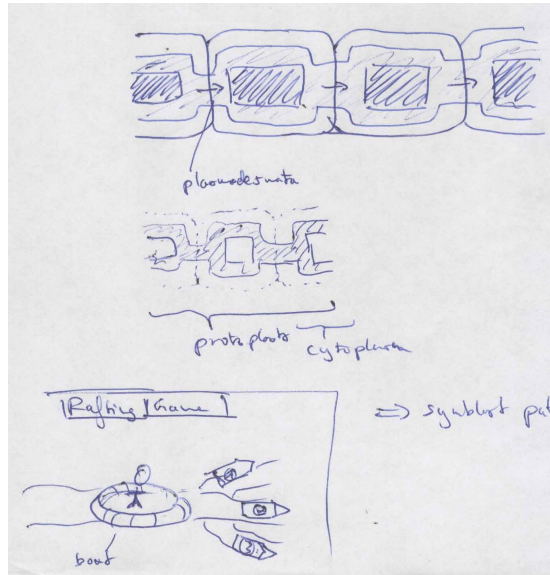 plasmodesmata
protoplasts
cytoplasm
Rafting Game
=> symblast pat
1
2
3
boat